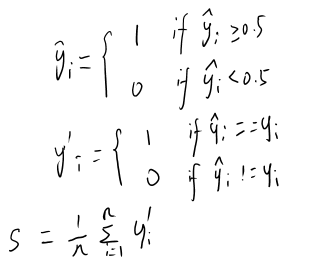 ŷᵢ = { 1 if ŷᵢ ≥ 0.5
0 if ŷᵢ < 0.5
y'ᵢ = { 1 if ŷᵢ == yᵢ
0 if ŷᵢ != yᵢ
S = 1/n ∑ᵢ₌₁ⁿ y'ᵢ